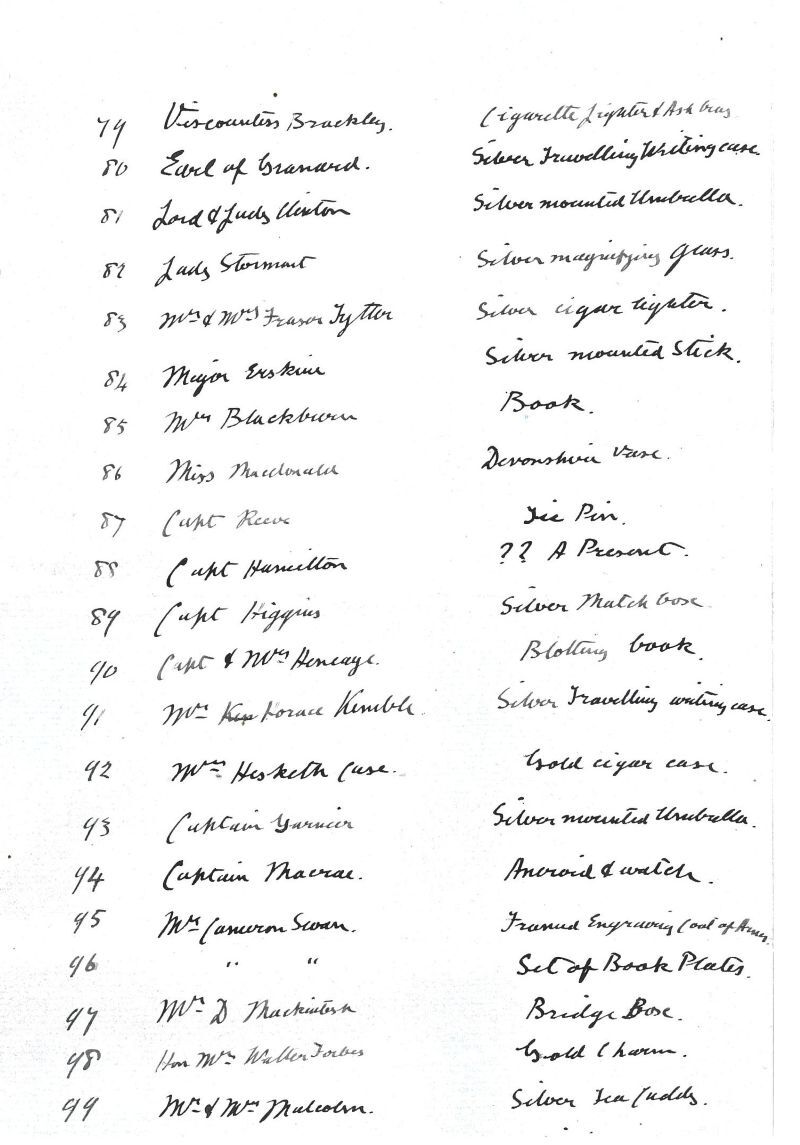 79 Viscountess Brackley. Cigarette Lighter & Ash tray
80 Earl of Granard. Silver Travelling Writing case.
81 Lord & Lady Clinton Silver mounted Umbrella.
82 Lady Stormont Silver magnifying Glass.
83 Mr & Mrs Fraser Tytler Silver cigar lighter.
84 Major Erskine Silver mounted Stick.
85 Mrs Blackburn Book.
86 Miss Macdonald Devonshire Vase.
87 Capt Reeve Tie Pin.
88 Capt Hamilton ?? A Present.
89 Capt Higgins Silver Match box
90 Capt & Mrs Heneage. Blotting book.
91 Mr Horace Kemble Silver Travelling writing case.
92 Mrs Hesketh Case. Gold cigar case.
93 Captain Garnier Silver mounted Umbrella.
94 Captain Macrae. Aneroid & watch.
95 Mr Cameron Swan. Framed Engraving Coat of Arms.
96 " " Set of Book Plates.
97 Mr D Mackintosh Bridge Box.
98 Hon Mrs Walter Forbes Gold Charm.
99 Mr & Mrs Malcolm. Silver Tea Caddy.